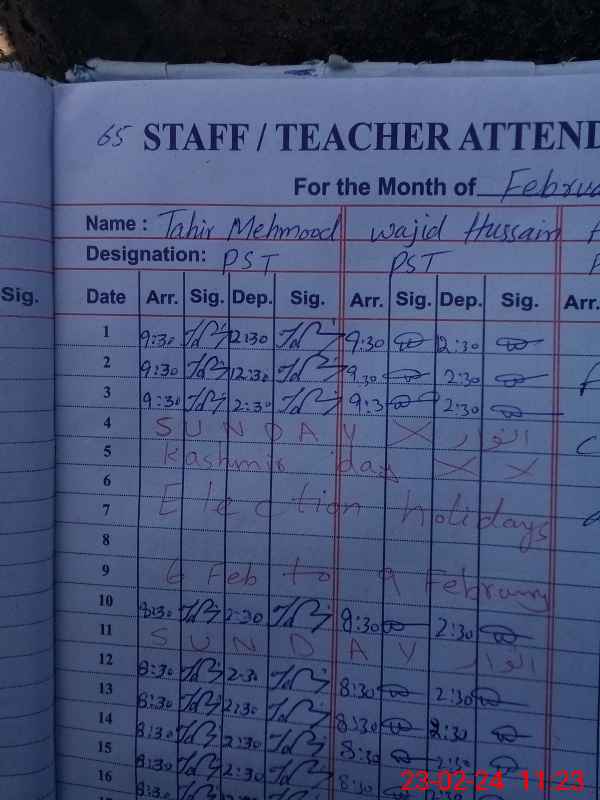 65 STAFF / TEACHER ATTEND
For the Month of Februa
Name : Tahir Mehmood Wajid Hussain
Designation: PST PST
Sig. Date Arr. Sig. Dep. Sig. Arr. Sig. Dep. Sig. Arr.
1 9:30 2:30 9:30 2:30
2 9:30 12:30 9:30 2:30
3 9:30 2:30 9:3 2:30
4 SUNDAY X اتوار
5 Kashmir day X X
6
7 Election holidays
8
9 6 Feb to 9 February
10 8:30 2:30 8:30 2:30
11 SUNDAY اتوار
12 8:30 2:30 8:30 2:30
13 8:30 2:30 8:30 2:30
14 8:30 2:30 8:30 2:30
15 8:30 2:30 8:30
16 8:30 2:30
23-02-24 11:23